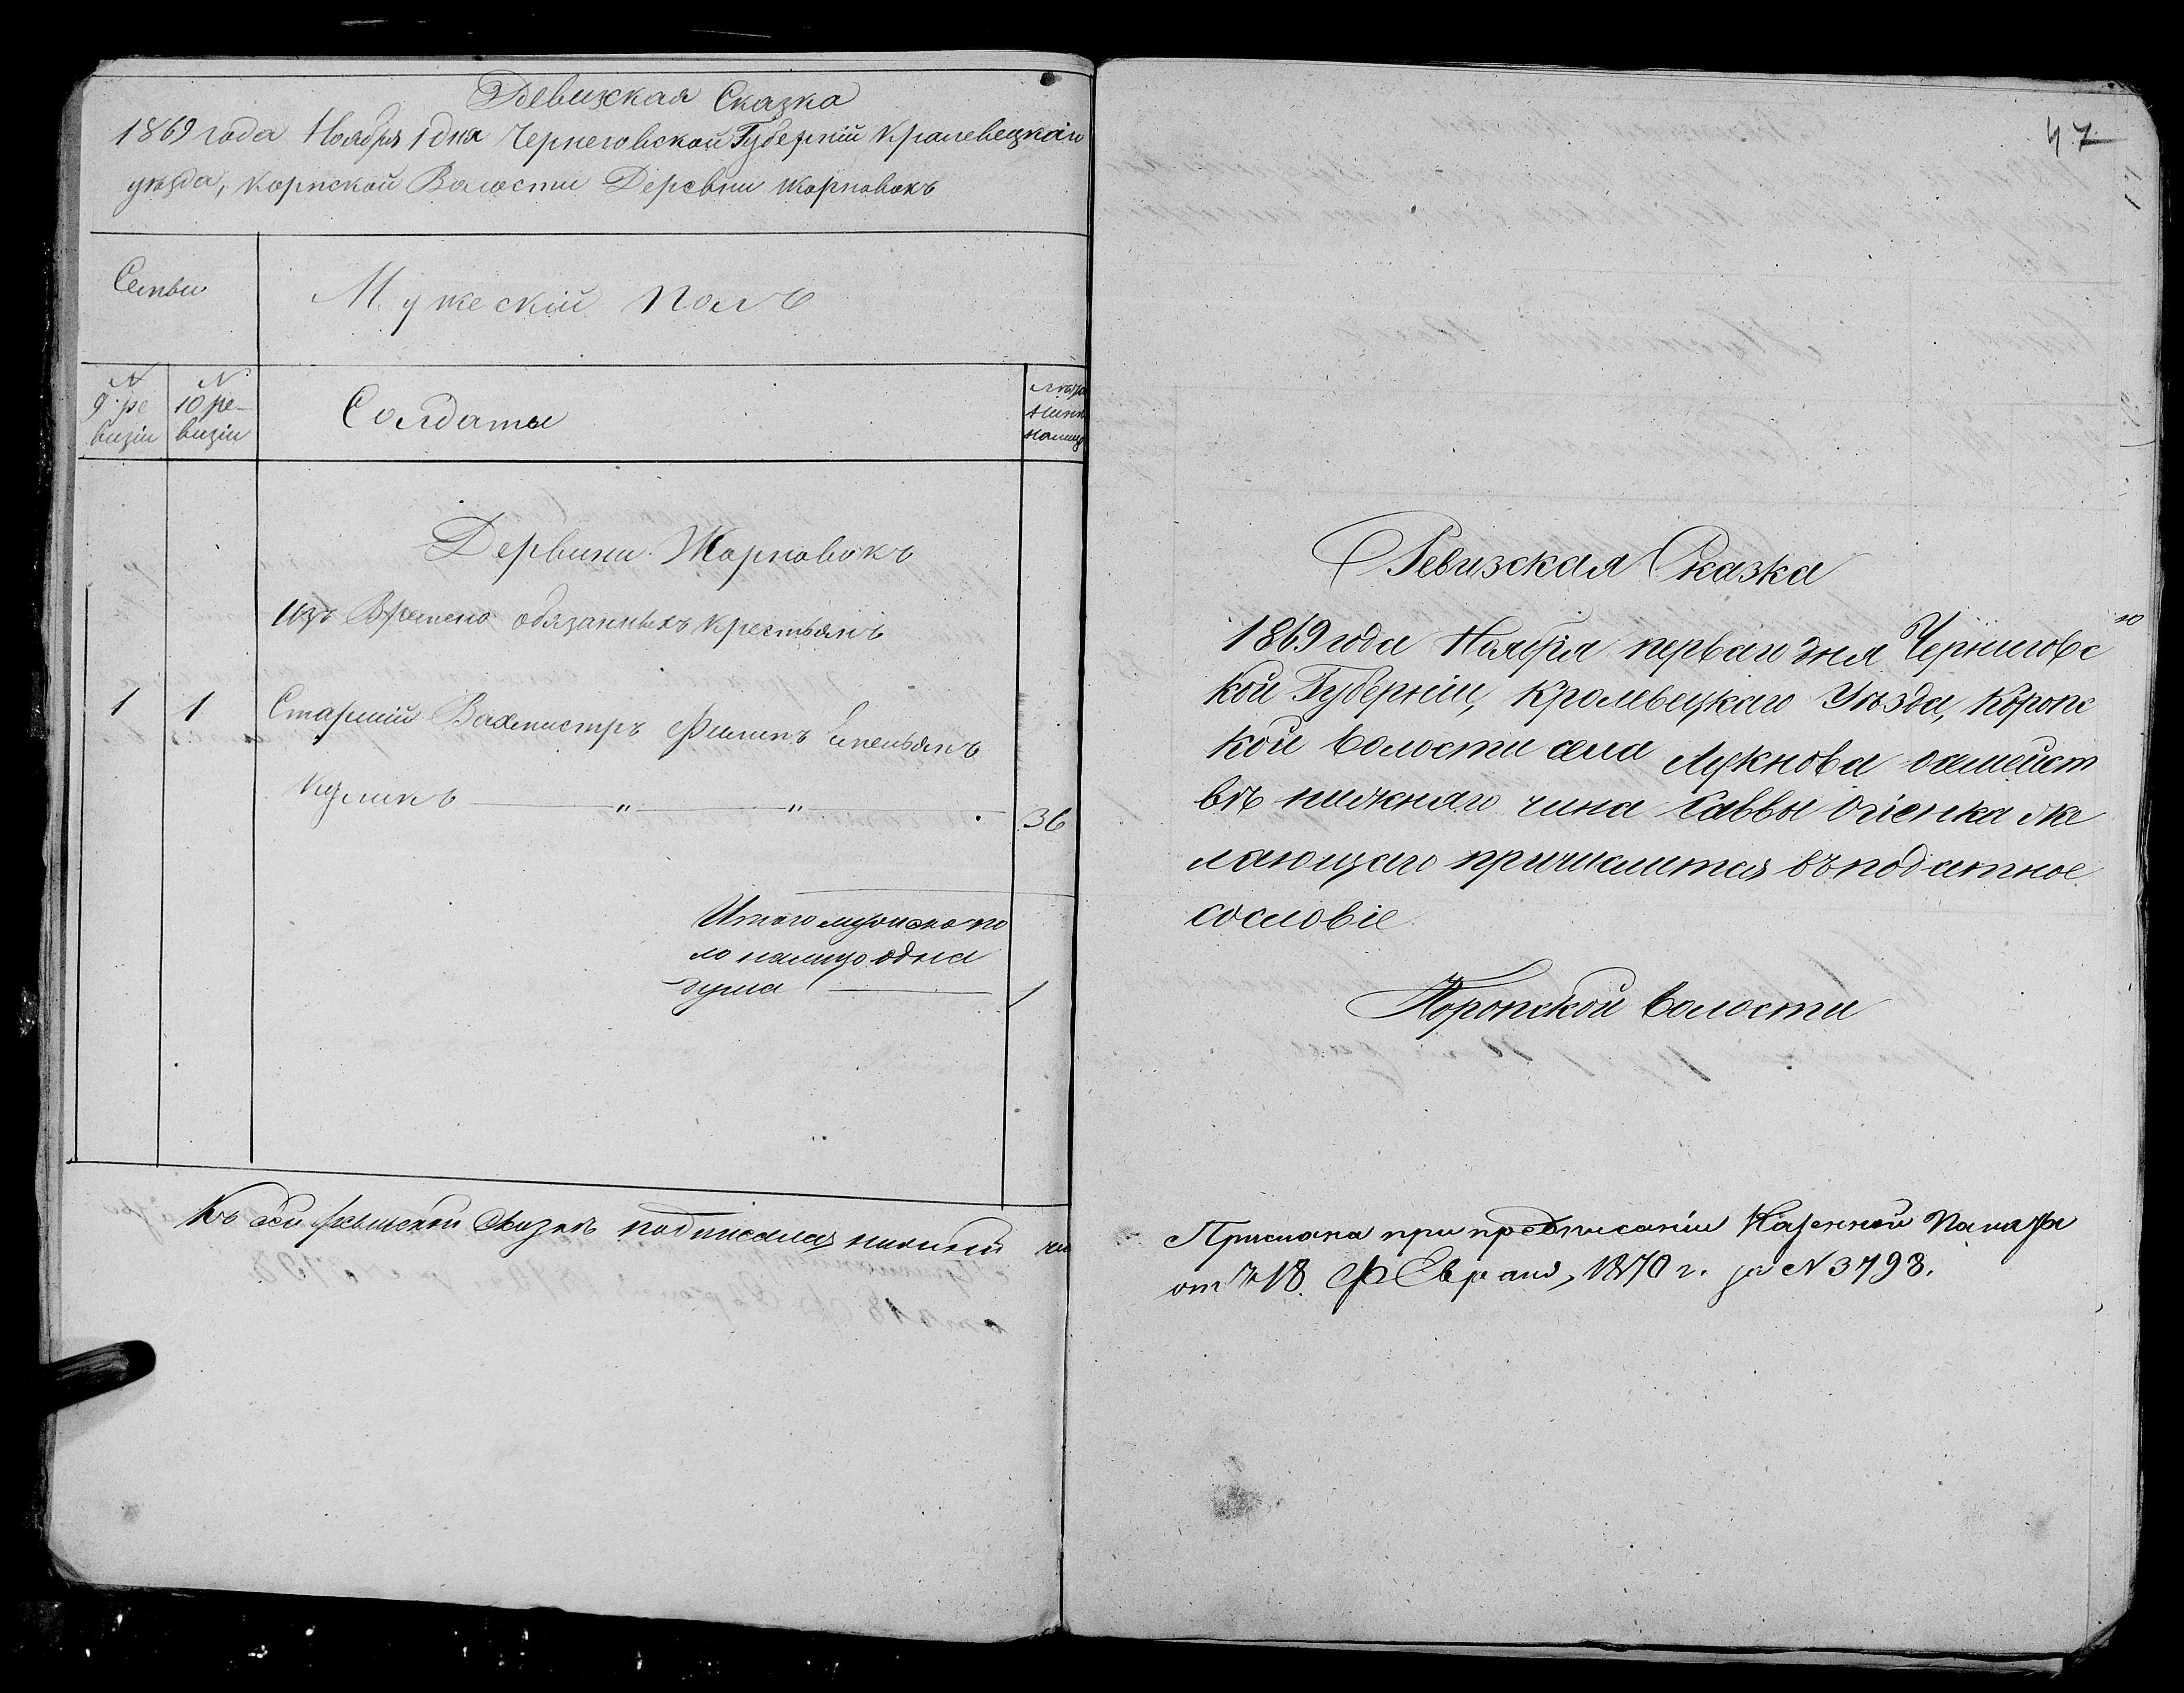 Ревизская Сказка
1869 года Ноября 1 дня Чернеговской Губерніи Кралевецкаго
уезда, Корпской Валости Деревни Жорновокъ
Семьи
Мужескій Полъ
N
9 ре
визіи
N
10 ре-
визіи
Солдаты
налицо
Дервини Жорновокъ
Изъ Времено обязанныхъ крестьянъ
1 1 Старшій Вахмистръ Филипъ
Куликъ — „ — „ — 36
Итого мужска по
ла налицо одна
душа — 1
Къ сей ревизской Сказкѣ подписался нижний чи
47
Ревизская Сказка
1869 года Ноября перваго дня Черниговс
кой Губерніи, Кролевецкаго Уѣзда, Коропс
кой Волости села Лукнова о семейст
вѣ нижняго чина Саввы Огіенка же
лающаго причислится въ податное
сословіе
Коропской Волости
Прислана при предписаніи Казенной Палаты
отъ 18 ФЕвраля, 1870 г. за N 3798.